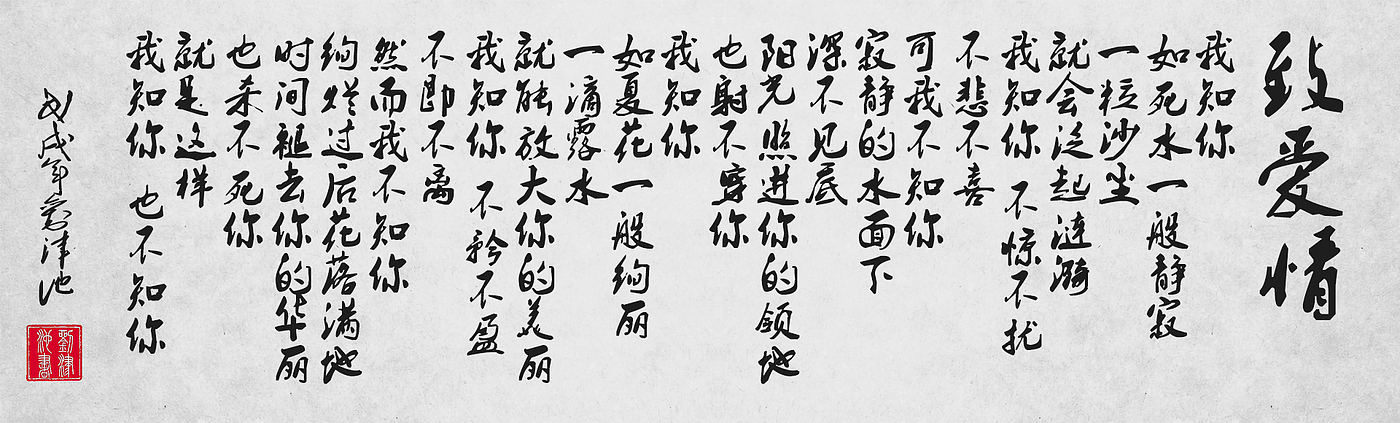 致爱情
我知你
如死水一般静寂
一粒沙尘
就会泛起涟漪
我知你 不惊不扰
不悲不喜
可我不知你
寂静的水面下
深不见底
阳光照进你的领地
也射不穿你
我知你
如夏花一般绚丽
一滴露水
就能放大你的美丽
我知你 不矜不盈
不即不离
然而我不知你
绚烂过后花落满地
时间褪去你的华丽
也杀不死你
就是这样
我知你 也不知你
戊戌年 刘津池
劉津
池書